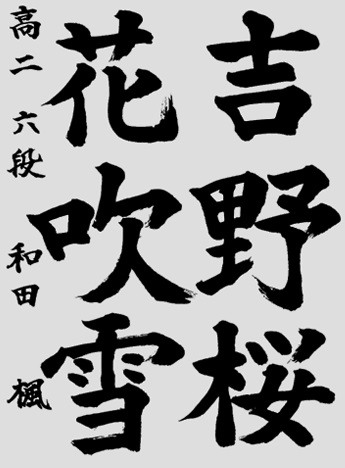 吉野桜
花吹雪
高二 六段 和田 楓